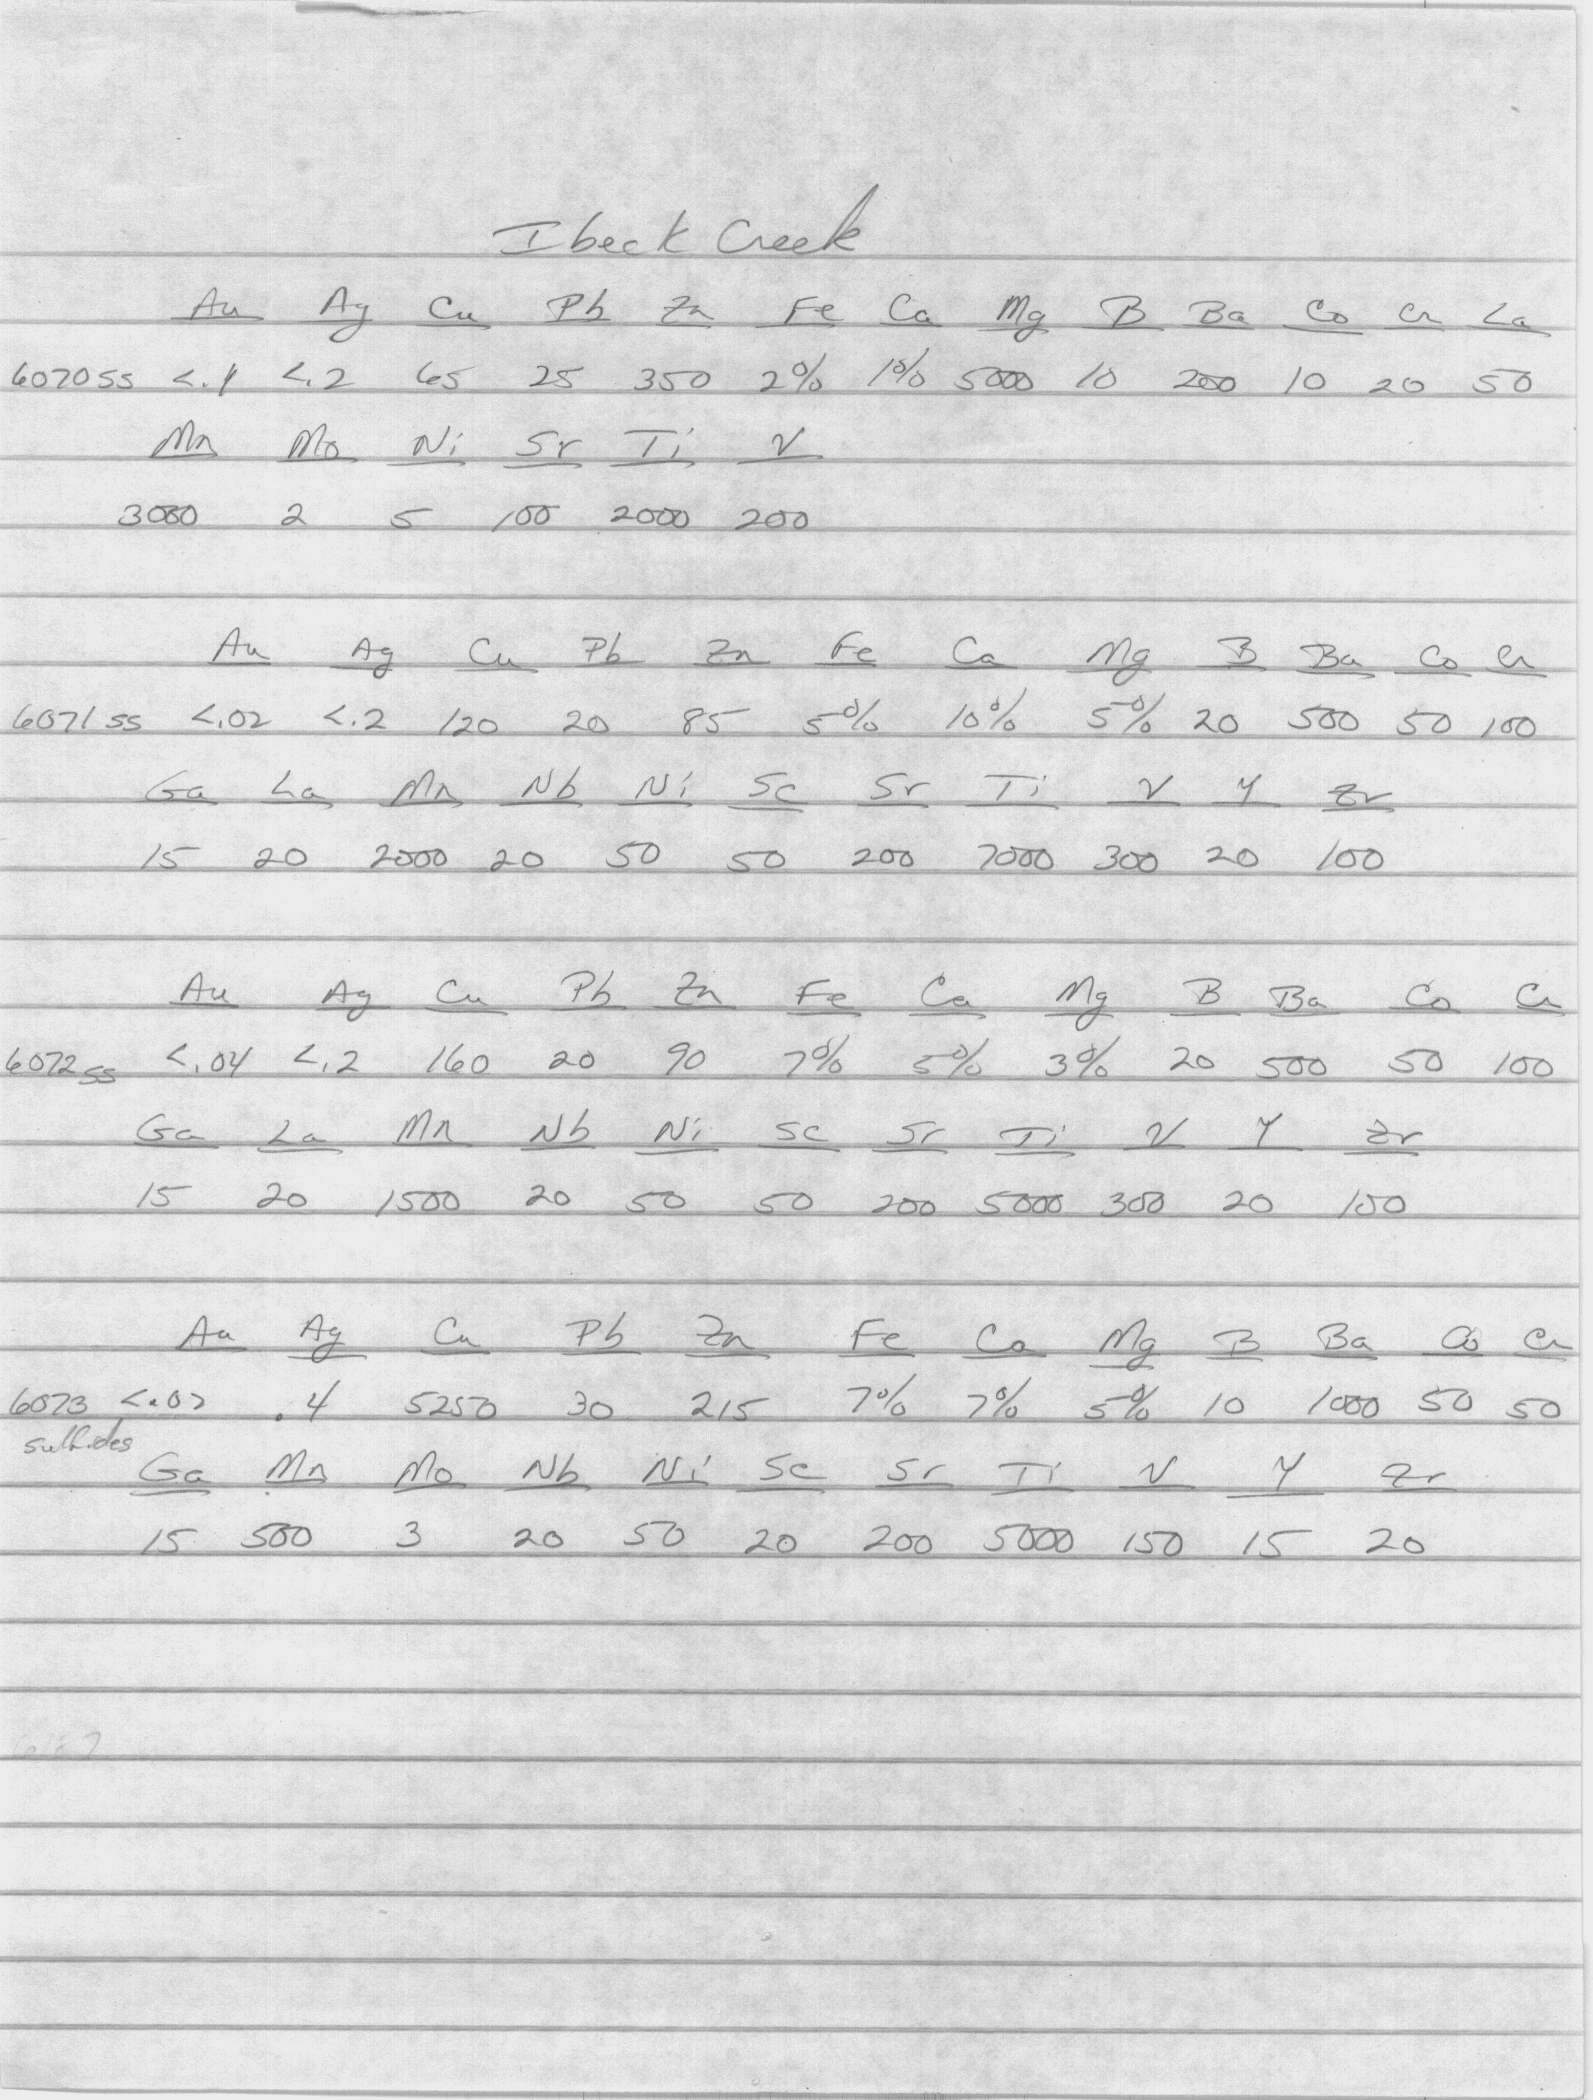 Ibeck Creek
Au Ag Cu Pb Zn Fe Ca Mg B Ba Co Cr La
6070 ss <.1 <.2 65 25 350 2% 1% 5000 10 200 10 20 50
Mn Mo Ni Sr Ti V
3000 2 5 100 2000 200
Au Ag Cu Pb Zn Fe Ca Mg B Ba Co Cr
6071 ss <.02 <.2 120 20 85 5% 10% 5% 20 500 50 100
Ga La Mn Nb Ni Sc Sr Ti V Y Zr
15 20 2000 20 50 50 200 7000 300 20 100
Au Ag Cu Pb Zn Fe Ca Mg B Ba Co Cr
6072 ss <.04 <.2 160 20 90 7% 5% 3% 20 500 50 100
Ga La Mn Nb Ni Sc Sr Ti V Y Zr
15 20 1500 20 50 50 200 5000 300 20 100
Au Ag Cu Pb Zn Fe Ca Mg B Ba Co Cr
6073 <.02 .4 5250 30 215 7% 7% 5% 10 1000 50 50
sulfides
Ga Mn Mo Nb Ni Sc Sr Ti V Y Zr
15 500 3 20 50 20 200 5000 150 15 20